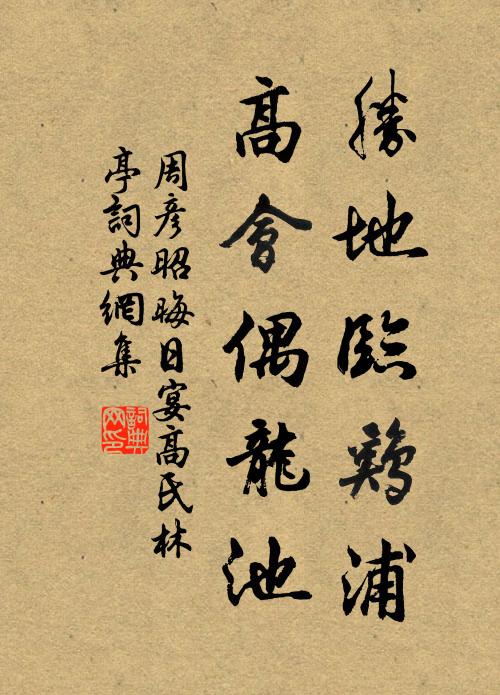 勝地臨鷄浦
高會偶龍池
周彥昭晦日宴高氏林
亭詞典網集
詞典網印